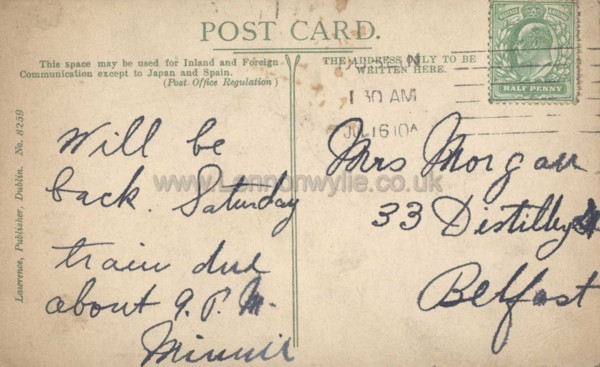 POST CARD.
This space may be used for Inland and Foreign
Communication except to Japan and Spain.
(Post Office Regulation)
THE ADDRESS ONLY TO BE
WRITTEN HERE.
1 30 AM
JUL 16 10
POSTAGE REVENUE
HALF PENNY
Lawrence, Publisher, Dublin. No. 8259
Will be
back. Saturday
train due
about 9. P. M.
Minnie
Mrs Morgan
33 Distillery St
Belfast
www.Lennonwylie.co.uk